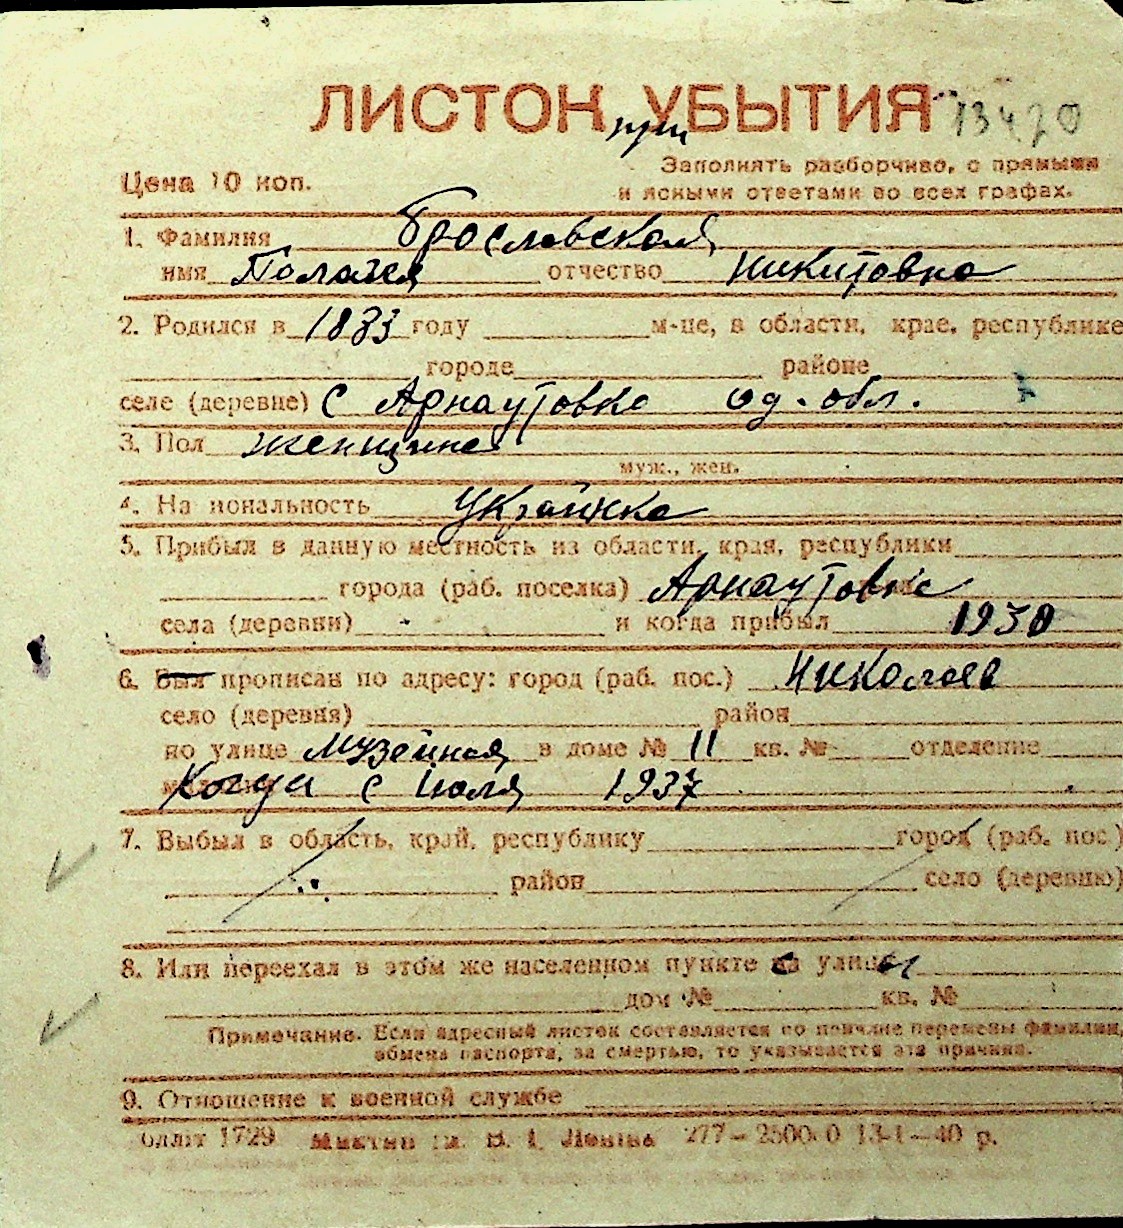 ЛИСТОК УБЫТИЯ 13420
при
Цена 10 коп.
Заполнять разборчиво, с прямыми
и ясными ответами во всех графах.
1. Фамилия Брославская
имя Палажея отчество Никитовна
2. Родился в 1883 году м-це, в области, крае, республике
городе районе
селе (деревне) с Арнаутовка од. обл.
3. Пол женщина
муж., жен.
4. Национальность украинка
5. Прибыл в данную местность из области, края, республики
города (раб. поселка) Арнаутовка
села (деревни) и когда прибыл 1930
6. Был прописан по адресу: город (раб. пос.) Николаев
село (деревня) район
по улице Музейная в доме № 11 кв. № отделение
Когда с Июля 1937
7. Выбыл в область, край, республику город (раб. пос.)
район село (деревню)
8. Или переехал в этом же населенном пункте с улицы
дом № кв. №
Примечание. Если адресный листок составляется по причине перемены фамилии,
обмена паспорта, за смертью, то указывается эта причина.
9. Отношение к военной службе
1729 В. І. Леніна 277—2500.0 13-1—40 р.